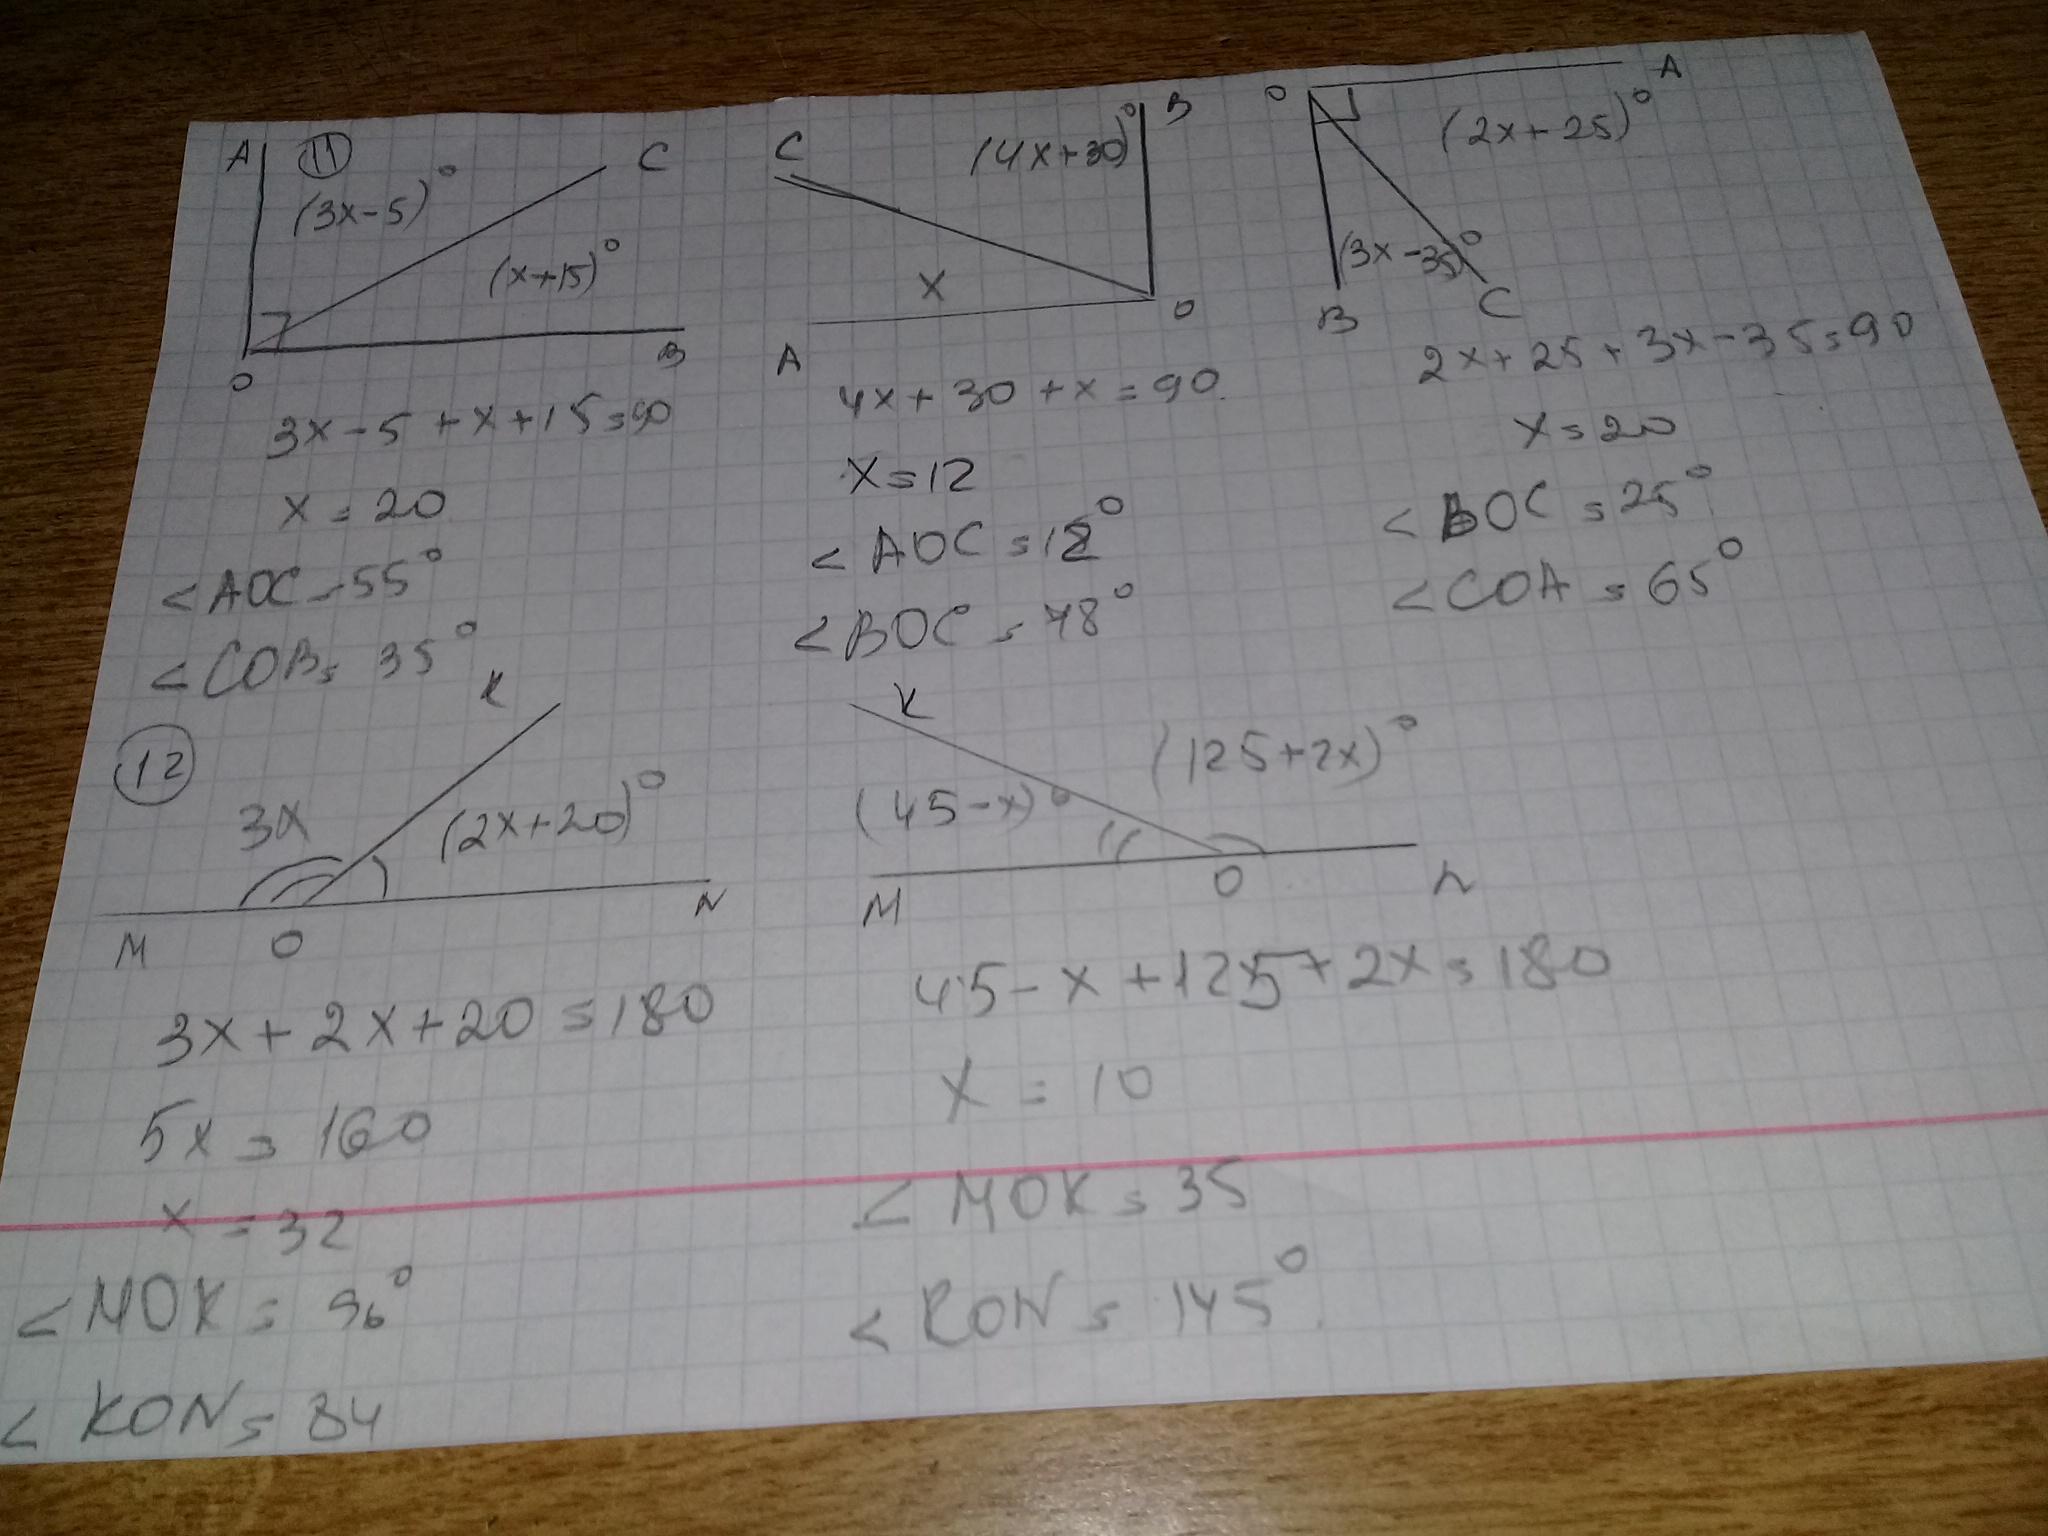 11
A
(3x-5)°
C
(x+15)°
O
B
3x-5+x+15=90
x=20
<AOC=55°
<COB=35°
C
(4x+30)°
B
x
A
O
4x+30+x=90
x=12
<AOC=12°
<BOC=78°
O
A
(2x+25)°
(3x-35)°
B
C
2x+25+3x-35=90
x=20
<BOC=25°
<COA=65°
12
K
3x
(2x+20)°
M
O
N
3x+2x+20=180
5x=160
x=32
<MOK=96°
<KON=84
K
(125+2x)°
(45-x)°
M
O
N
45-x+125+2x=180
x=10
<MOK=35
<KON=145°